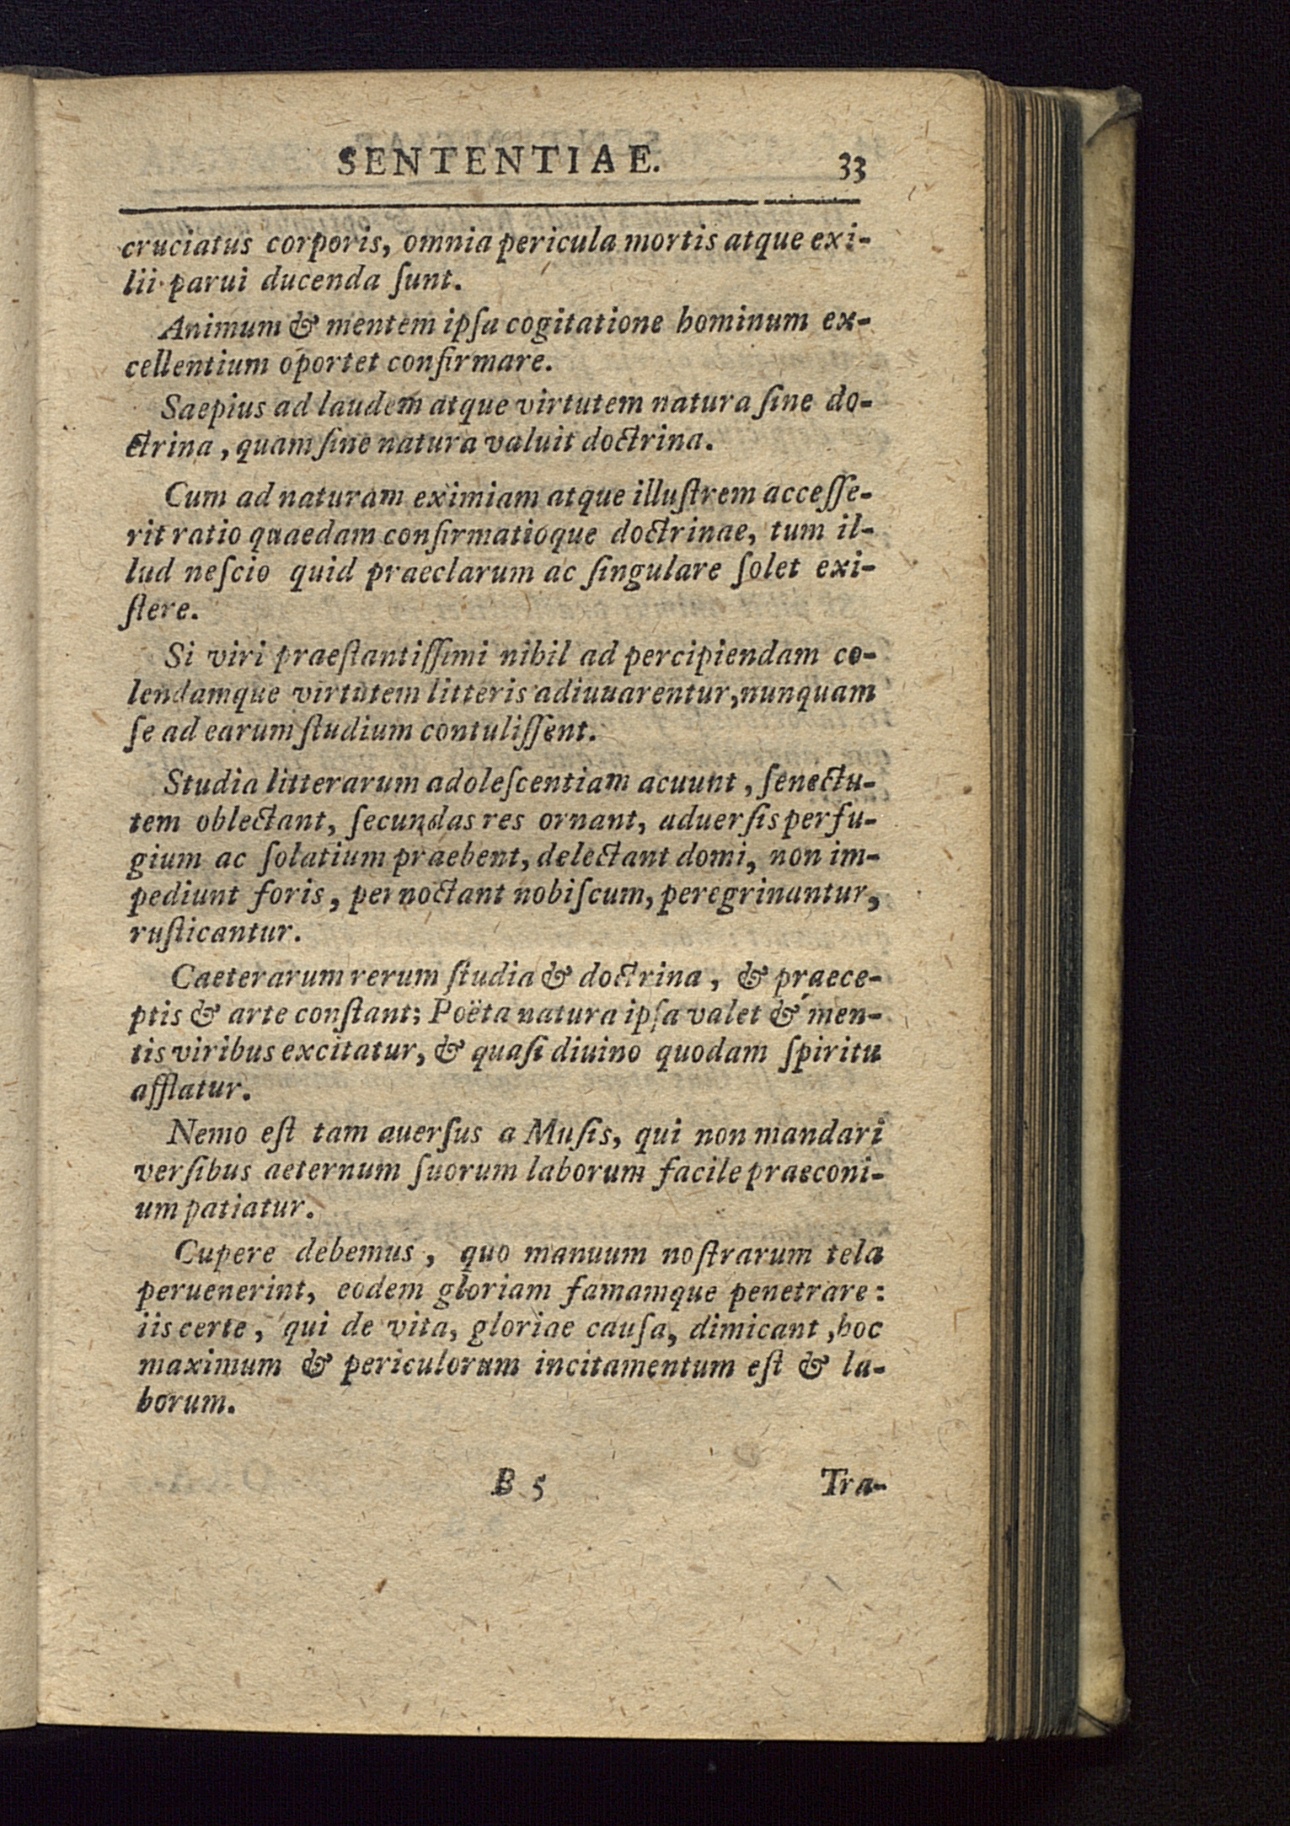 SENTENTIAE. 33
cruciatus corporis, omnia pericula mortis atque exi-
lii parui ducenda ſunt.
Animum & mentem ipſa cogitatione hominum ex-
cellentium oportet confirmare.
Saepius ad laudem atque virtutem natura ſine do-
ctrina, quam ſine natura valuit doctrina.
Cum ad naturam eximiam atque illuſtrem acceſſe-
rit ratio quaedam confirmatioque doctrinae, tum il-
lud neſcio quid praeclarum ac ſingulare ſolet exi-
ſtere.
Si viri praeſtantiſſimi nihil ad percipiendam co-
lendamque virtutem litteris adiuuarentur, nunquam
ſe ad earum ſtudium contuliſſent.
Studia litterarum adoleſcentiam acuunt, ſenectu-
tem oblectant, ſecundas res ornant, aduerſis perfu-
gium ac ſolatium praebent, delectant domi, non im-
pediunt foris, pernoctant nobiſcum, peregrinantur,
ruſticantur.
Caeterarum rerum ſtudia & doctrina, & praece-
ptis & arte conſtant; Poëta natura ipſa valet & men-
tis viribus excitatur, & quaſi diuino quodam ſpiritu
afflatur.
Nemo eſt tam auerſus a Muſis, qui non mandari
verſibus aeternum ſuorum laborum facile praeconi-
um patiatur.
Cupere debemus, quo manuum noſtrarum tela
peruenerint, eodem gloriam famamque penetrare:
iis certe, qui de vita, gloriae cauſa, dimicant, hoc
maximum & periculorum incitamentum eſt & la-
borum.
B 5 Tra-